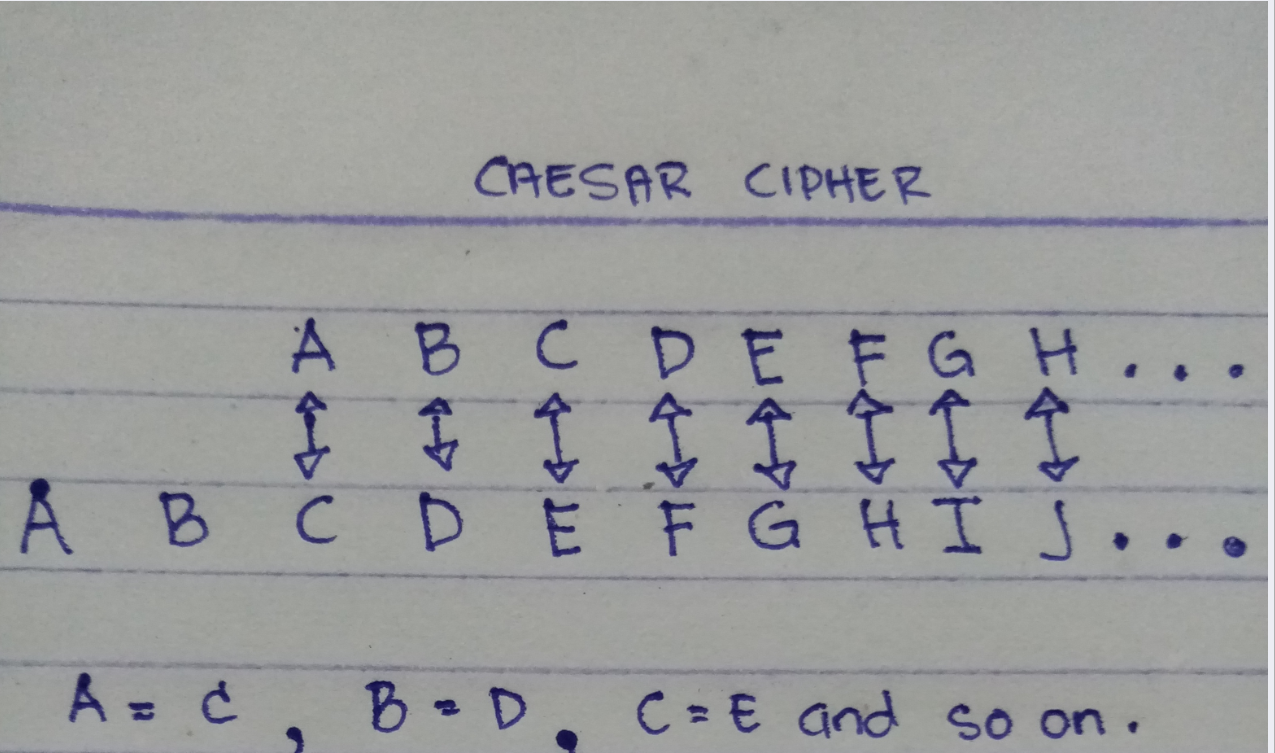 CAESAR CIPHER
A B C D E F G H ...
A B C D E F G H I J ...
A = C , B = D , C = E and so on.